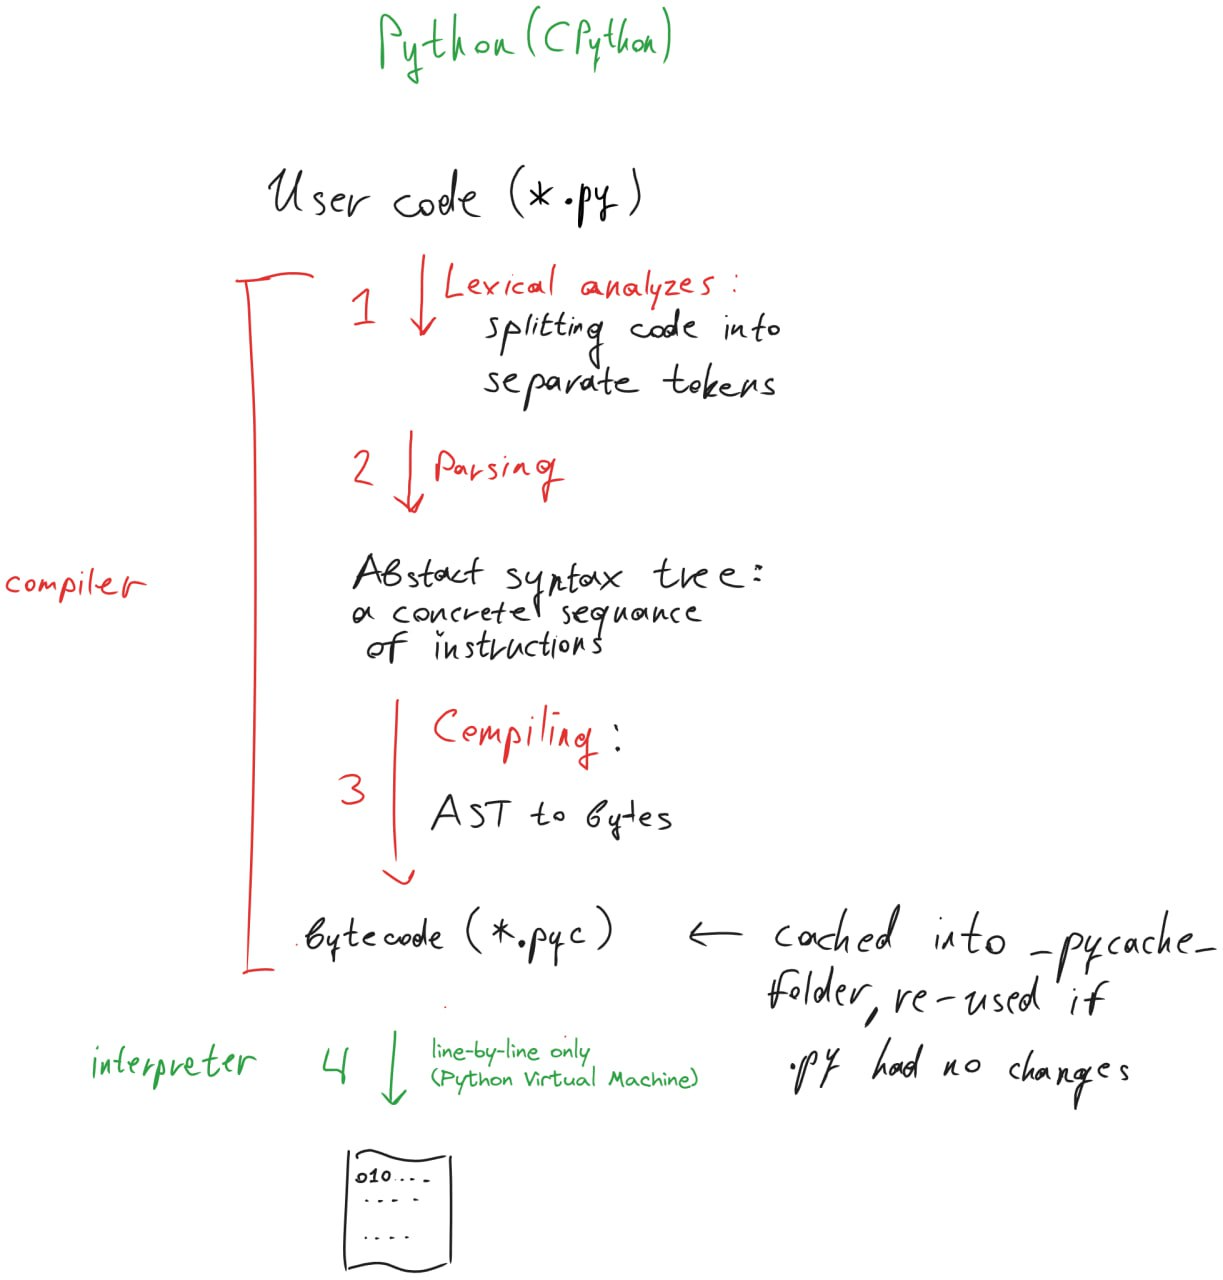 Python (CPython)
User code (*.py)
1
Lexical analyzes:
splitting code into
separate tokens
2
Parsing
compiler
Abstact syntax tree:
a concrete sequance
of instructions
Compiling:
3
AST to bytes
bytecode (*.pyc)
← cached into _pycache_
folder, re-used if
.py had no changes
interpreter
4
line-by-line only
(Python Virtual Machine)
010....
....
....